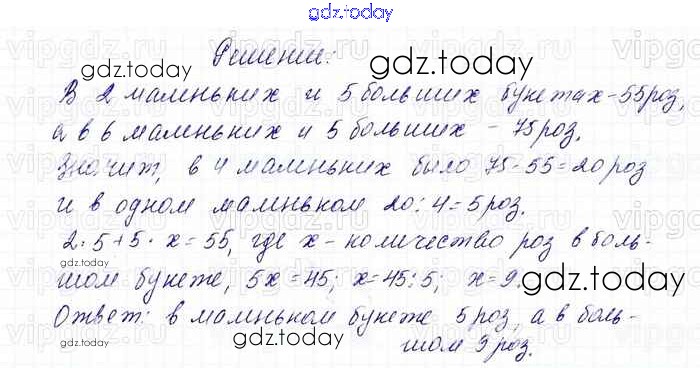 gdz.today
Решение:
gdz.today
gdz.today
В 2 маленьких и 5 больших букетах - 55 роз,
а в 6 маленьких и 5 больших - 75 роз.
Значит, в 4 маленьких было 75-55=20 роз
и в одном маленьком 20:4=5 роз.
2·5+5·x=55, где x - количество роз в боль-
шом букете, 5x=45; x=45:5; x=9.
gdz.today
Ответ: в маленьком букете 5 роз, а в боль-
gdz.today
gdz.today
шом 9 роз.